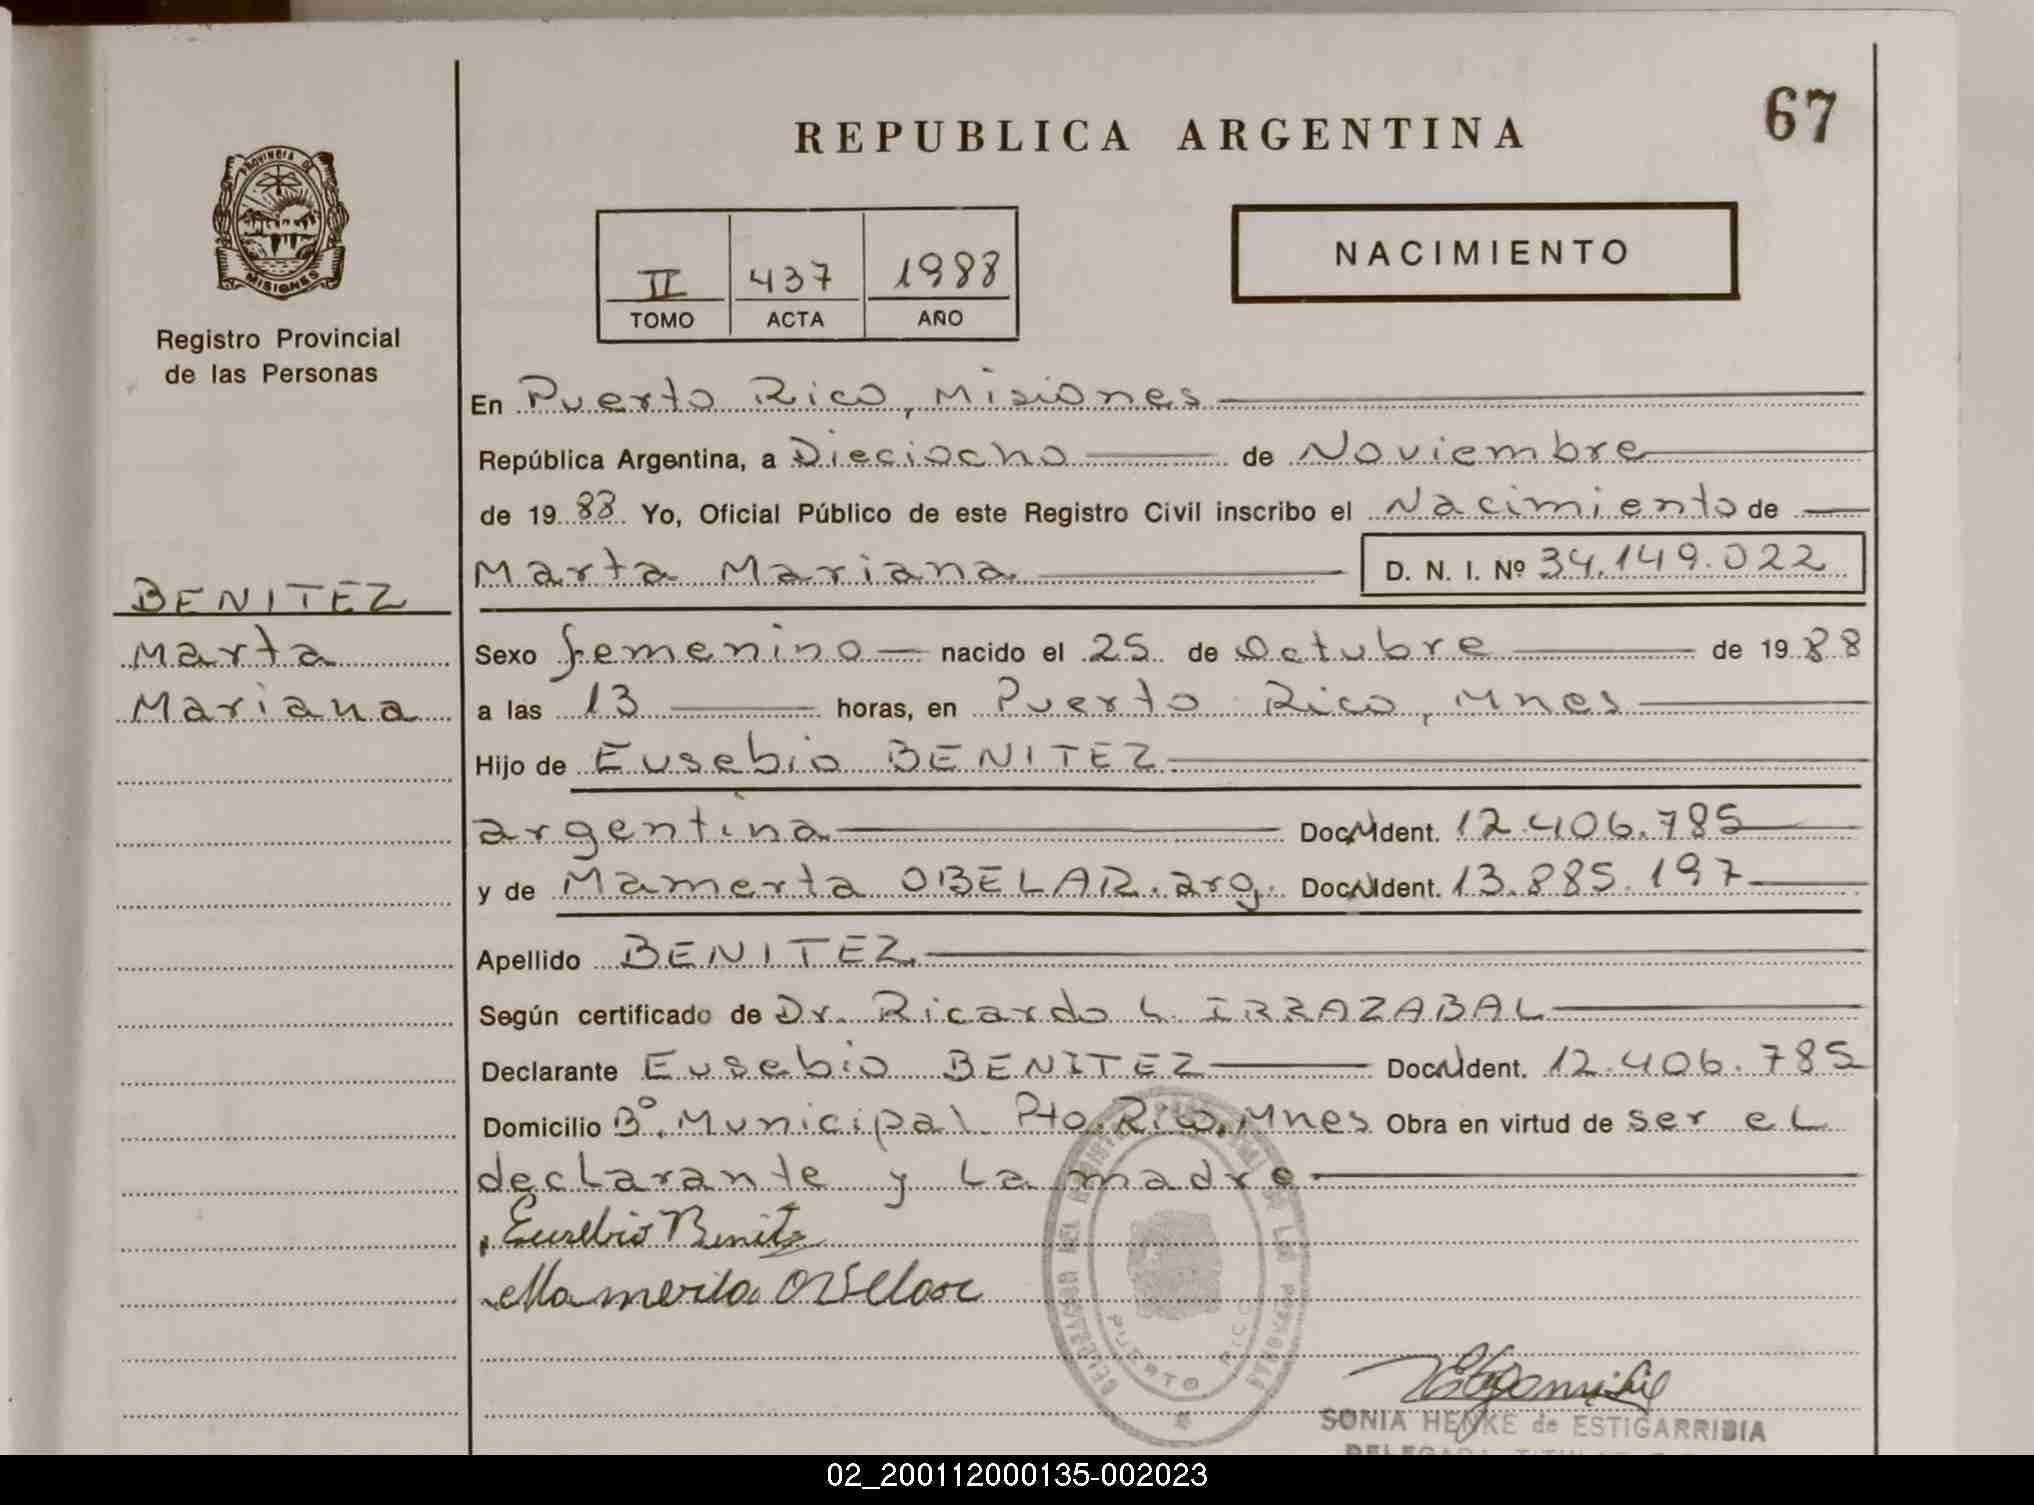 67
REPUBLICA ARGENTINA
PROVINCIA DE
MISIONES
Registro Provincial
de las Personas
II 437 1988
TOMO ACTA AÑO
NACIMIENTO
En Puerto Rico, Misiones
República Argentina, a Dieciocho de Noviembre
de 1988 Yo, Oficial Público de este Registro Civil inscribo el Nacimiento de
Marta Mariana D. N. I. Nº 34.149.022
BENITEZ
Marta
Mariana
Sexo femenino nacido el 25 de Octubre de 1988
a las 13 horas, en Puerto Rico, Mnes
Hijo de Eusebio BENITEZ
argentina Doc. Ident. 12.406.785
y de Mamerta OBELAR. arg. Doc. Ident. 13.885.197
Apellido BENITEZ
Según certificado de Dr. Ricardo L. IRRAZABAL
Declarante Eusebio BENITEZ Doc. Ident. 12.406.785
Domicilio Bº. Municipal Pto. Rico, Mnes Obra en virtud de ser el
declarante y la madre
Eusebio Benitez
Mamerta Obelar
PUERTO RICO
SONIA HENKE de ESTIGARRIBIA
02_200112000135-002023